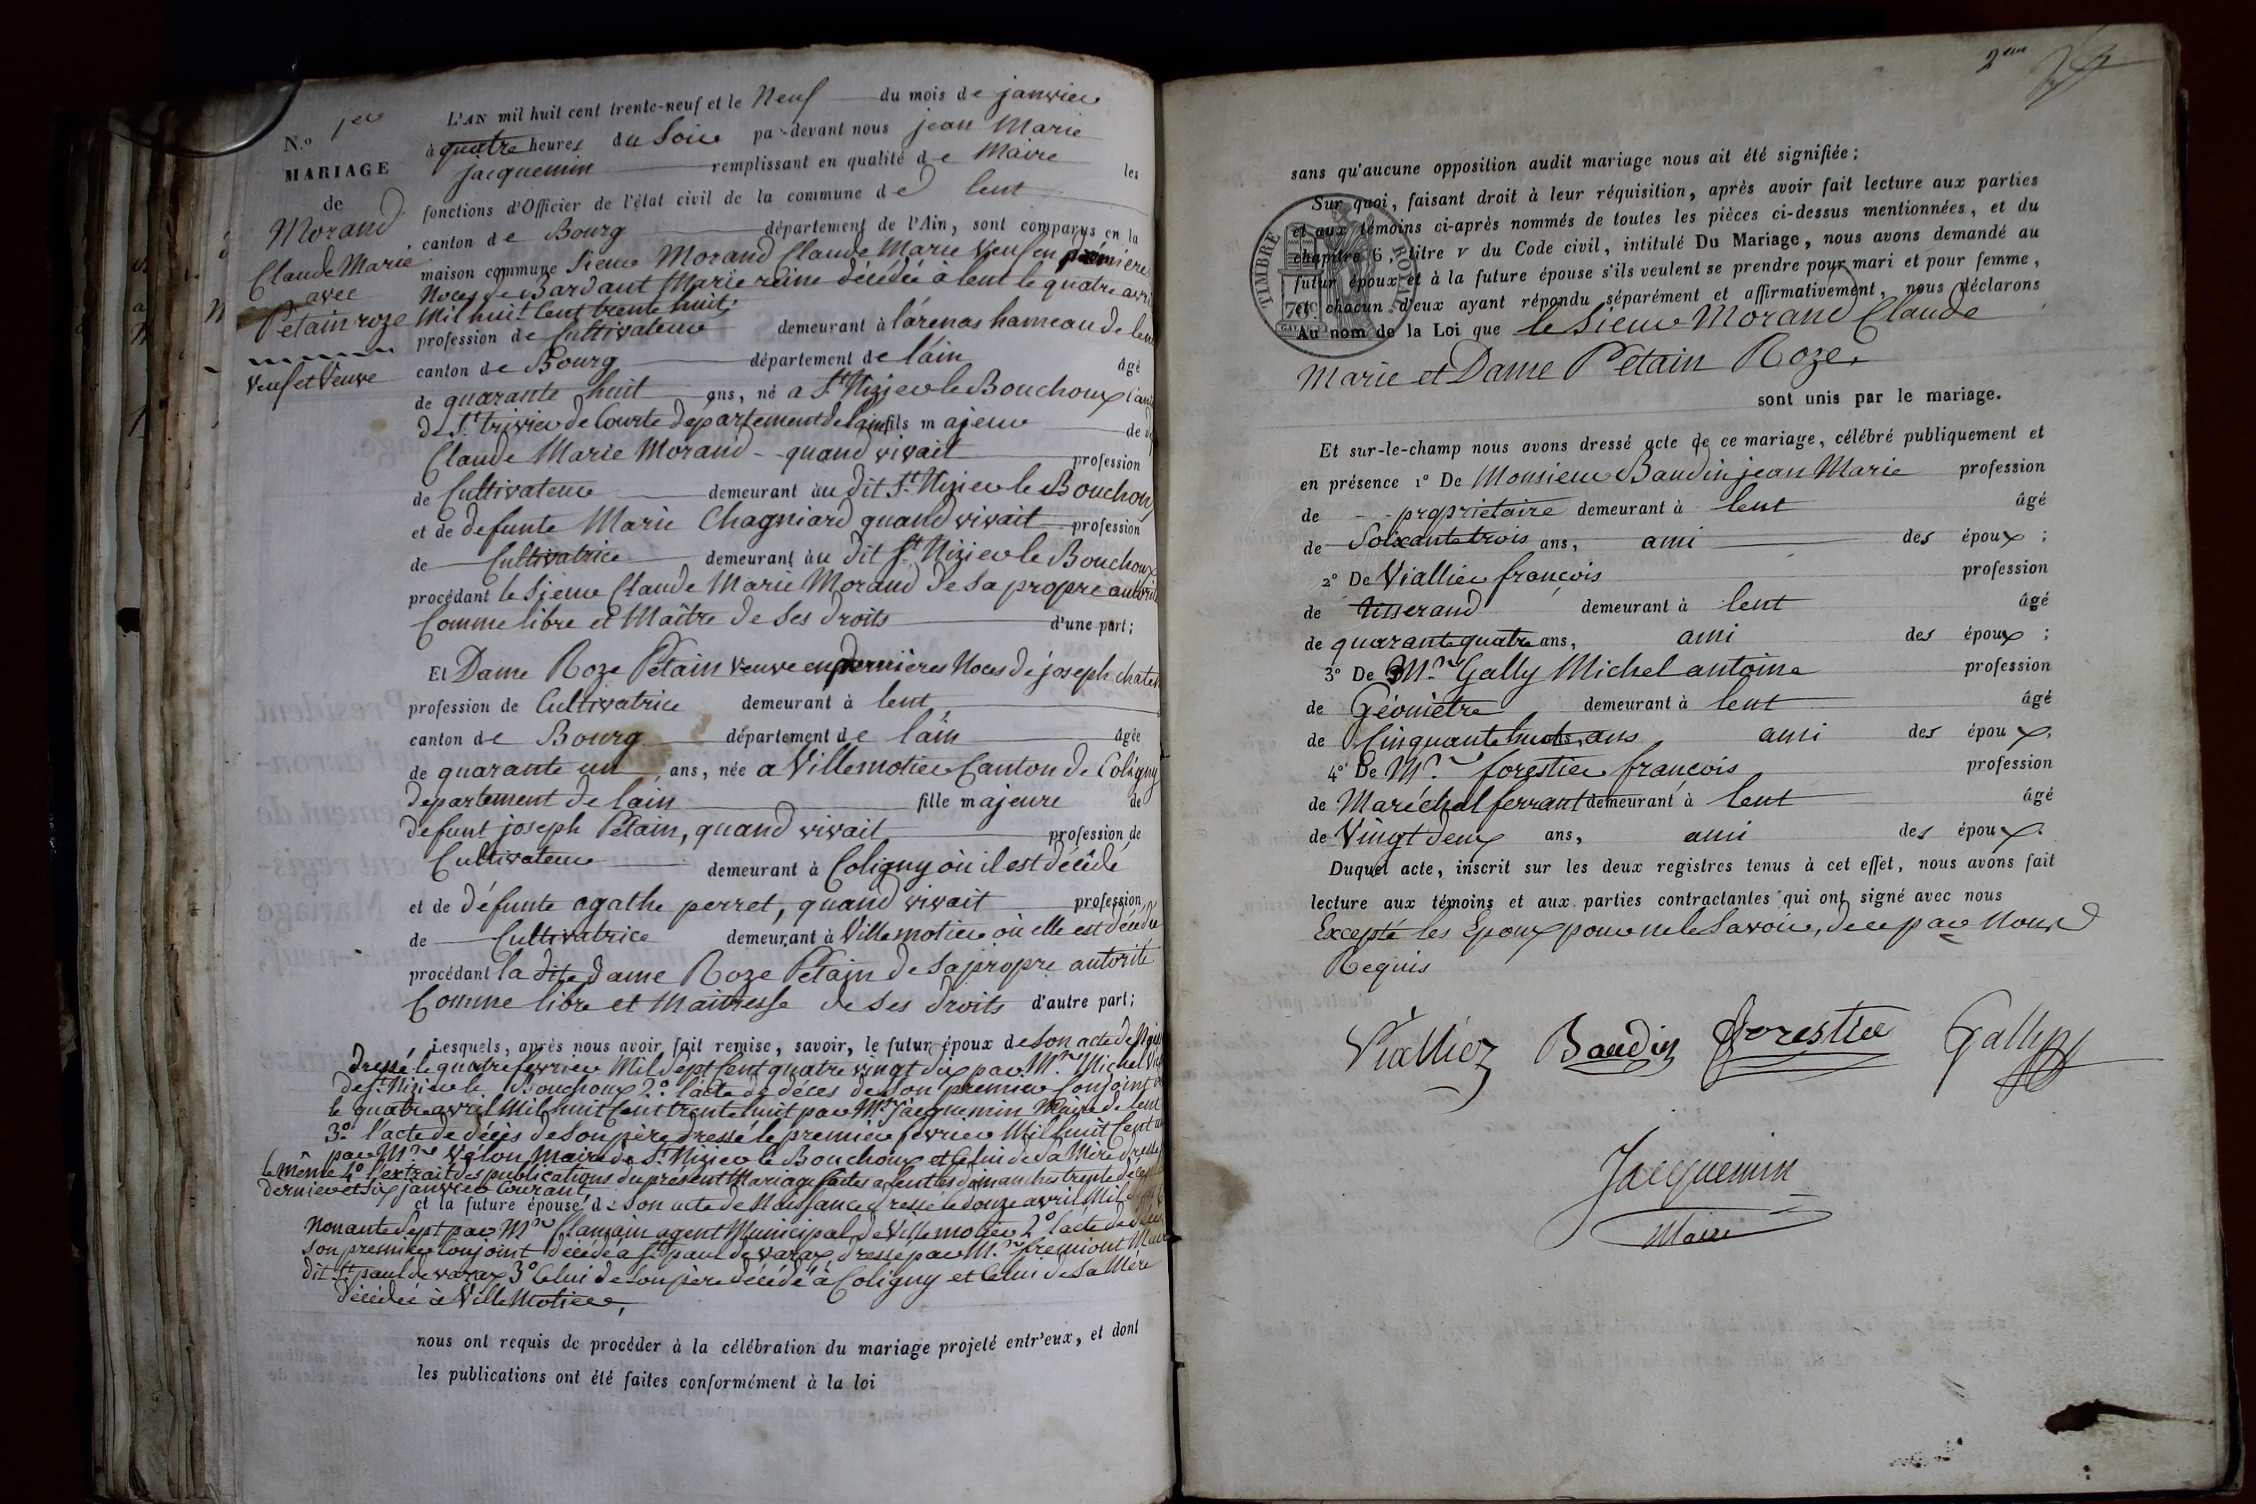 N.o 1er
MARIAGE
de
Morand
Claude Marie
avec
Pétain roze
Veuf et Veuve
L'AN mil huit cent trente-neuf et le Neuf du mois de janvier
à quatre heures du Soir pa-devant nous jean Marie
jacquemin remplissant en qualité de Maire les
fonctions d'Officier de l'état civil de la commune de lent
canton de Bourg département de l'Ain, sont comparus en la
maison commune Sieur Morand Claude Marie Veuf en premieres
Noces de Bardaut Marie reine décédée à lent le quatre avril
Mil huit Cent trente huit
profession de Cultivateur demeurant à larenas hameau de lent
canton de Bourg département de l'ain âgé
de quarante huit ans, né a St Nizier le Bouchoux
de St trivier de Courte département de lain fils majeur de
Claude Marie Morand - quand vivait profession
de Cultivateur demeurant au dit St Nizier le Bouchoux
et de defunte Marie Chagniard quand vivait profession
de Cultivatrice demeurant au dit St Nizier le Bouchoux
procédant le Sieur Claude Marie Morand de sa propre autorité
Comme libre et Maître de Ses droits d'une part;
Et Dame Roze Pétain veuve en dernières Noces de joseph
profession de Cultivatrice demeurant à lent
canton de Bourg département de l'ain âgée
de quarante un ans, née a Villemotier Canton de Coligny
département de lain fille majeure de
defunt joseph Pétain, quand vivait profession de
Cultivateur demeurant à Coligny où il est décédé
et de défunte agathe perret, quand vivait profession
de Cultivatrice demeurant à Villemotier où elle est décédée
procédant la dite dame Roze Pétain de sa propre autorité
Comme libre et Maitresse de Ses droits d'autre part;
Lesquels, après nous avoir fait remise, savoir, le futur époux de son acte de
dressé le quatre fevrier Mil Sept Cent quatre vingt dix par Mr Michel
de St Nizier le Bouchoux 2o l'acte de décès de Son premier Conjoint
le quatre avril Mil huit Cent trente huit par Mr Jacquemin Maire de lent
3o l'acte de décès de Son père dressé le premier fevrier Mil huit Cent
par Mr Vélon Maire de St Nizier le Bouchoux et Celui de Sa Mère dressé
le même 4o l'extrait des publications du présent Mariage faites a lent les dimanches trente
dernier et Six janvier Courant
et la future épouse de Son acte de Naissance dressé le douze avril Mil
Nonante Sept par Mr agent Municipal de Ville motier 2o l'acte de
Son premier Conjoint décédé a St paul de varax dressé par Mr fremiont
dit St paul de varax 3o Celui de Son père décédé à Coligny et Celui de Sa Mère
décédée à Ville Motier,
nous ont requis de procéder à la célébration du mariage projeté entr'eux, et dont
les publications ont été faites conformément à la loi
2em
sans qu'aucune opposition audit mariage nous ait été signifiée;
Sur quoi, faisant droit à leur réquisition, après avoir fait lecture aux parties
et aux témoins ci-après nommés de toutes les pièces ci-dessus mentionnées, et du
chapitre 6, titre v du Code civil, intitulé Du Mariage, nous avons demandé au
futur époux et à la future épouse s'ils veulent se prendre pour mari et pour femme,
et chacun d'eux ayant répondu séparément et affirmativement, nous déclarons
Au nom de la Loi que le Sieur Morand Claude
Marie et Dame Pétain Roze.
sont unis par le mariage.
TIMBRE ROYAL
Et sur-le-champ nous avons dressé acte de ce mariage, célébré publiquement et
en présence 1o De Monsieur Baudin jean Marie profession
de - - propriétaire demeurant à lent âgé
de Soixante trois ans, ami des époux ;
2o De Viallier françois profession
de tisserand demeurant à lent âgé
de quarante quatre ans, ami des époux ;
3o De Mr Gally Michel antoine profession
de Géomètre demeurant à lent âgé
de Cinquante ans ami des époux.
4o De Mr forestier françois profession
de Maréchal ferrant demeurant à lent âgé
de Vingt deux ans, ami des époux.
Duquel acte, inscrit sur les deux registres tenus à cet effet, nous avons fait
lecture aux témoins et aux parties contractantes qui ont signé avec nous
Excepté les Epoux pour ne le Savoir, de ce par Nous
Requis
Viallier Baudin forestier Gally
Jacquemin
Maire